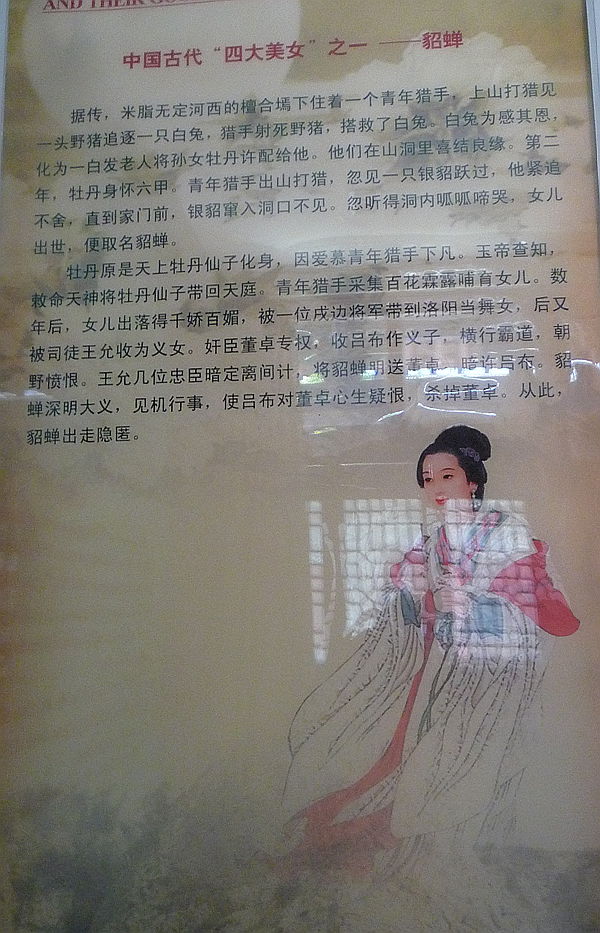 AND THEIR
中国古代“四大美女”之一 ——貂蝉
据传，米脂无定河西的檀合塌下住着一个青年猎手，上山打猎见
一头野猪追逐一只白兔，猎手射死野猪，搭救了白兔。白兔为感其恩，
化为一白发老人将孙女牡丹许配给他。他们在山洞里喜结良缘。第二
年，牡丹身怀六甲。青年猎手出山打猎，忽见一只银貂跃过，他紧追
不舍，直到家门前，银貂窜入洞口不见。忽听得洞内呱呱啼哭，女儿
出世，便取名貂蝉。
牡丹原是天上牡丹仙子化身，因爱慕青年猎手下凡。玉帝查知，
敕命天神将牡丹仙子带回天庭。青年猎手采集百花霖露哺育女儿。数
年后，女儿出落得千娇百媚，被一位戍边将军带到洛阳当舞女，后又
被司徒王允收为义女。奸臣董卓专权，收吕布作义子，横行霸道，朝
野愤恨。王允几位忠臣暗定离间计，将貂蝉明送董卓，暗许吕布。貂
蝉深明大义，见机行事，使吕布对董卓心生疑恨，杀掉董卓。从此，
貂蝉出走隐匿。